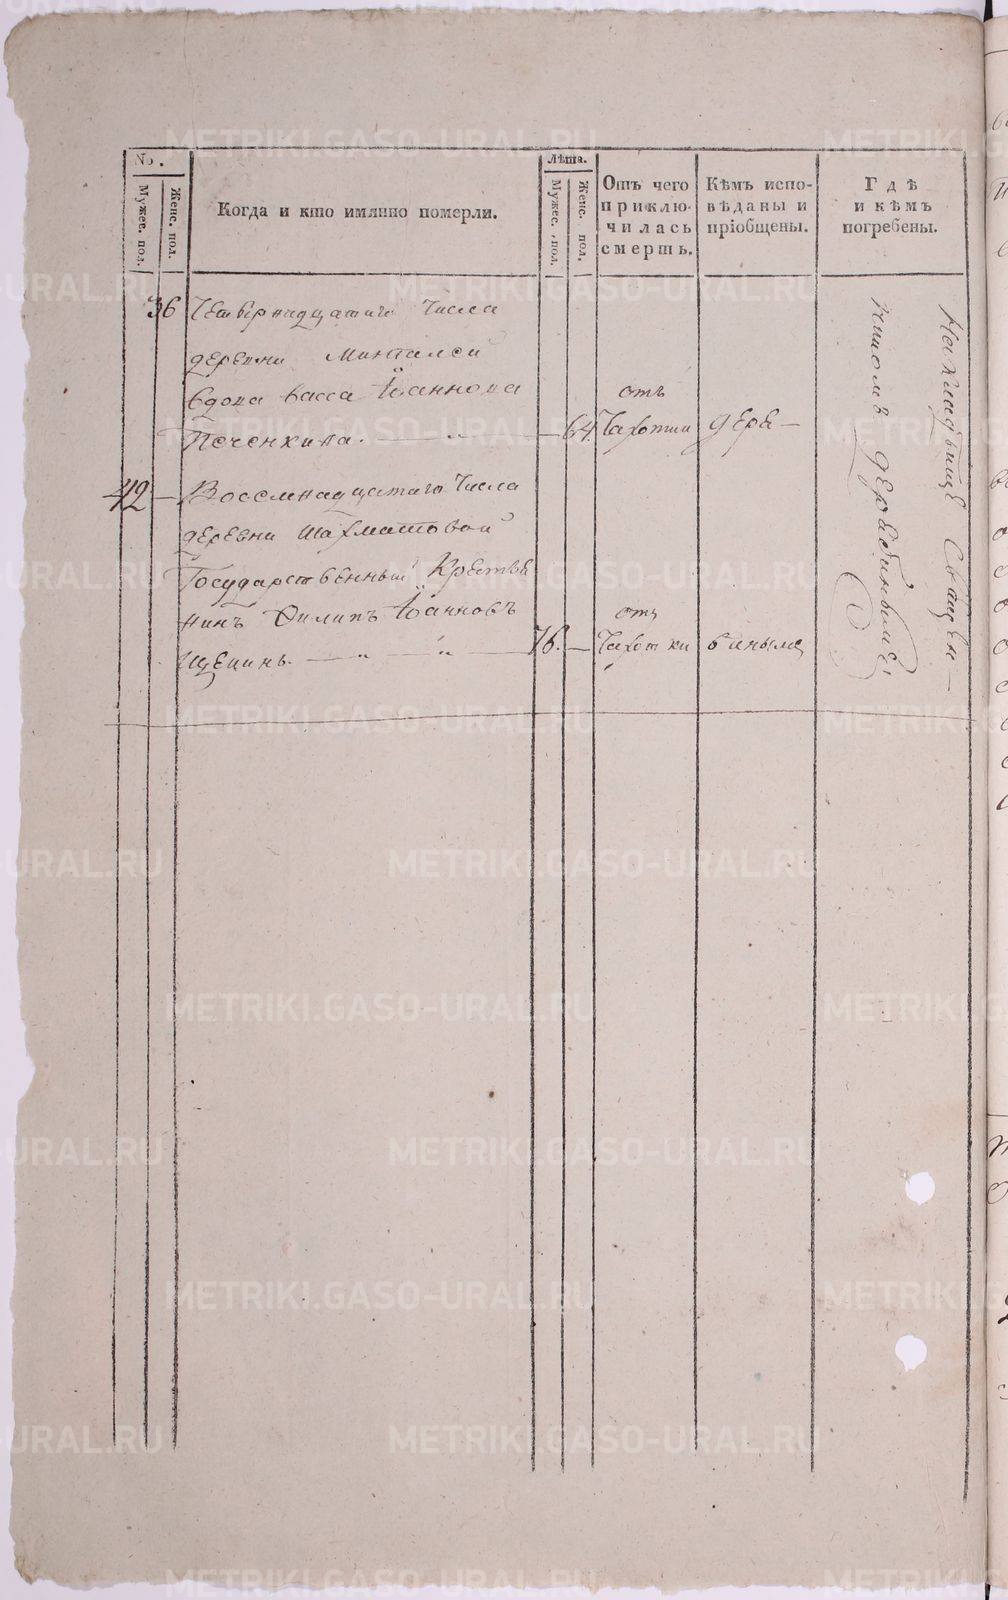 No.
Мужес. пол.
Женс. пол.
Когда и кто имянно померли.
Лѣта.
Мужес. пол.
Женс. пол.
Отъ чего приклю-
чилась
смерть.
Кѣмъ испо-
вѣданы и
пріобщены.
Гдѣ
и кѣмъ
погребены.
36 Четырнадцатаго числа
деревни
вдова Васса Іоаннова отъ
Печенкина. 64. Чахотки дере-
42 Восемнадцатаго числа
деревни Шахматовой
Государственный Крестья
нинъ Филипъ Іанновъ отъ
Щепинъ. 76. Чахотки
На кладбище Священ-
METRIKI.GASO-URAL.RU